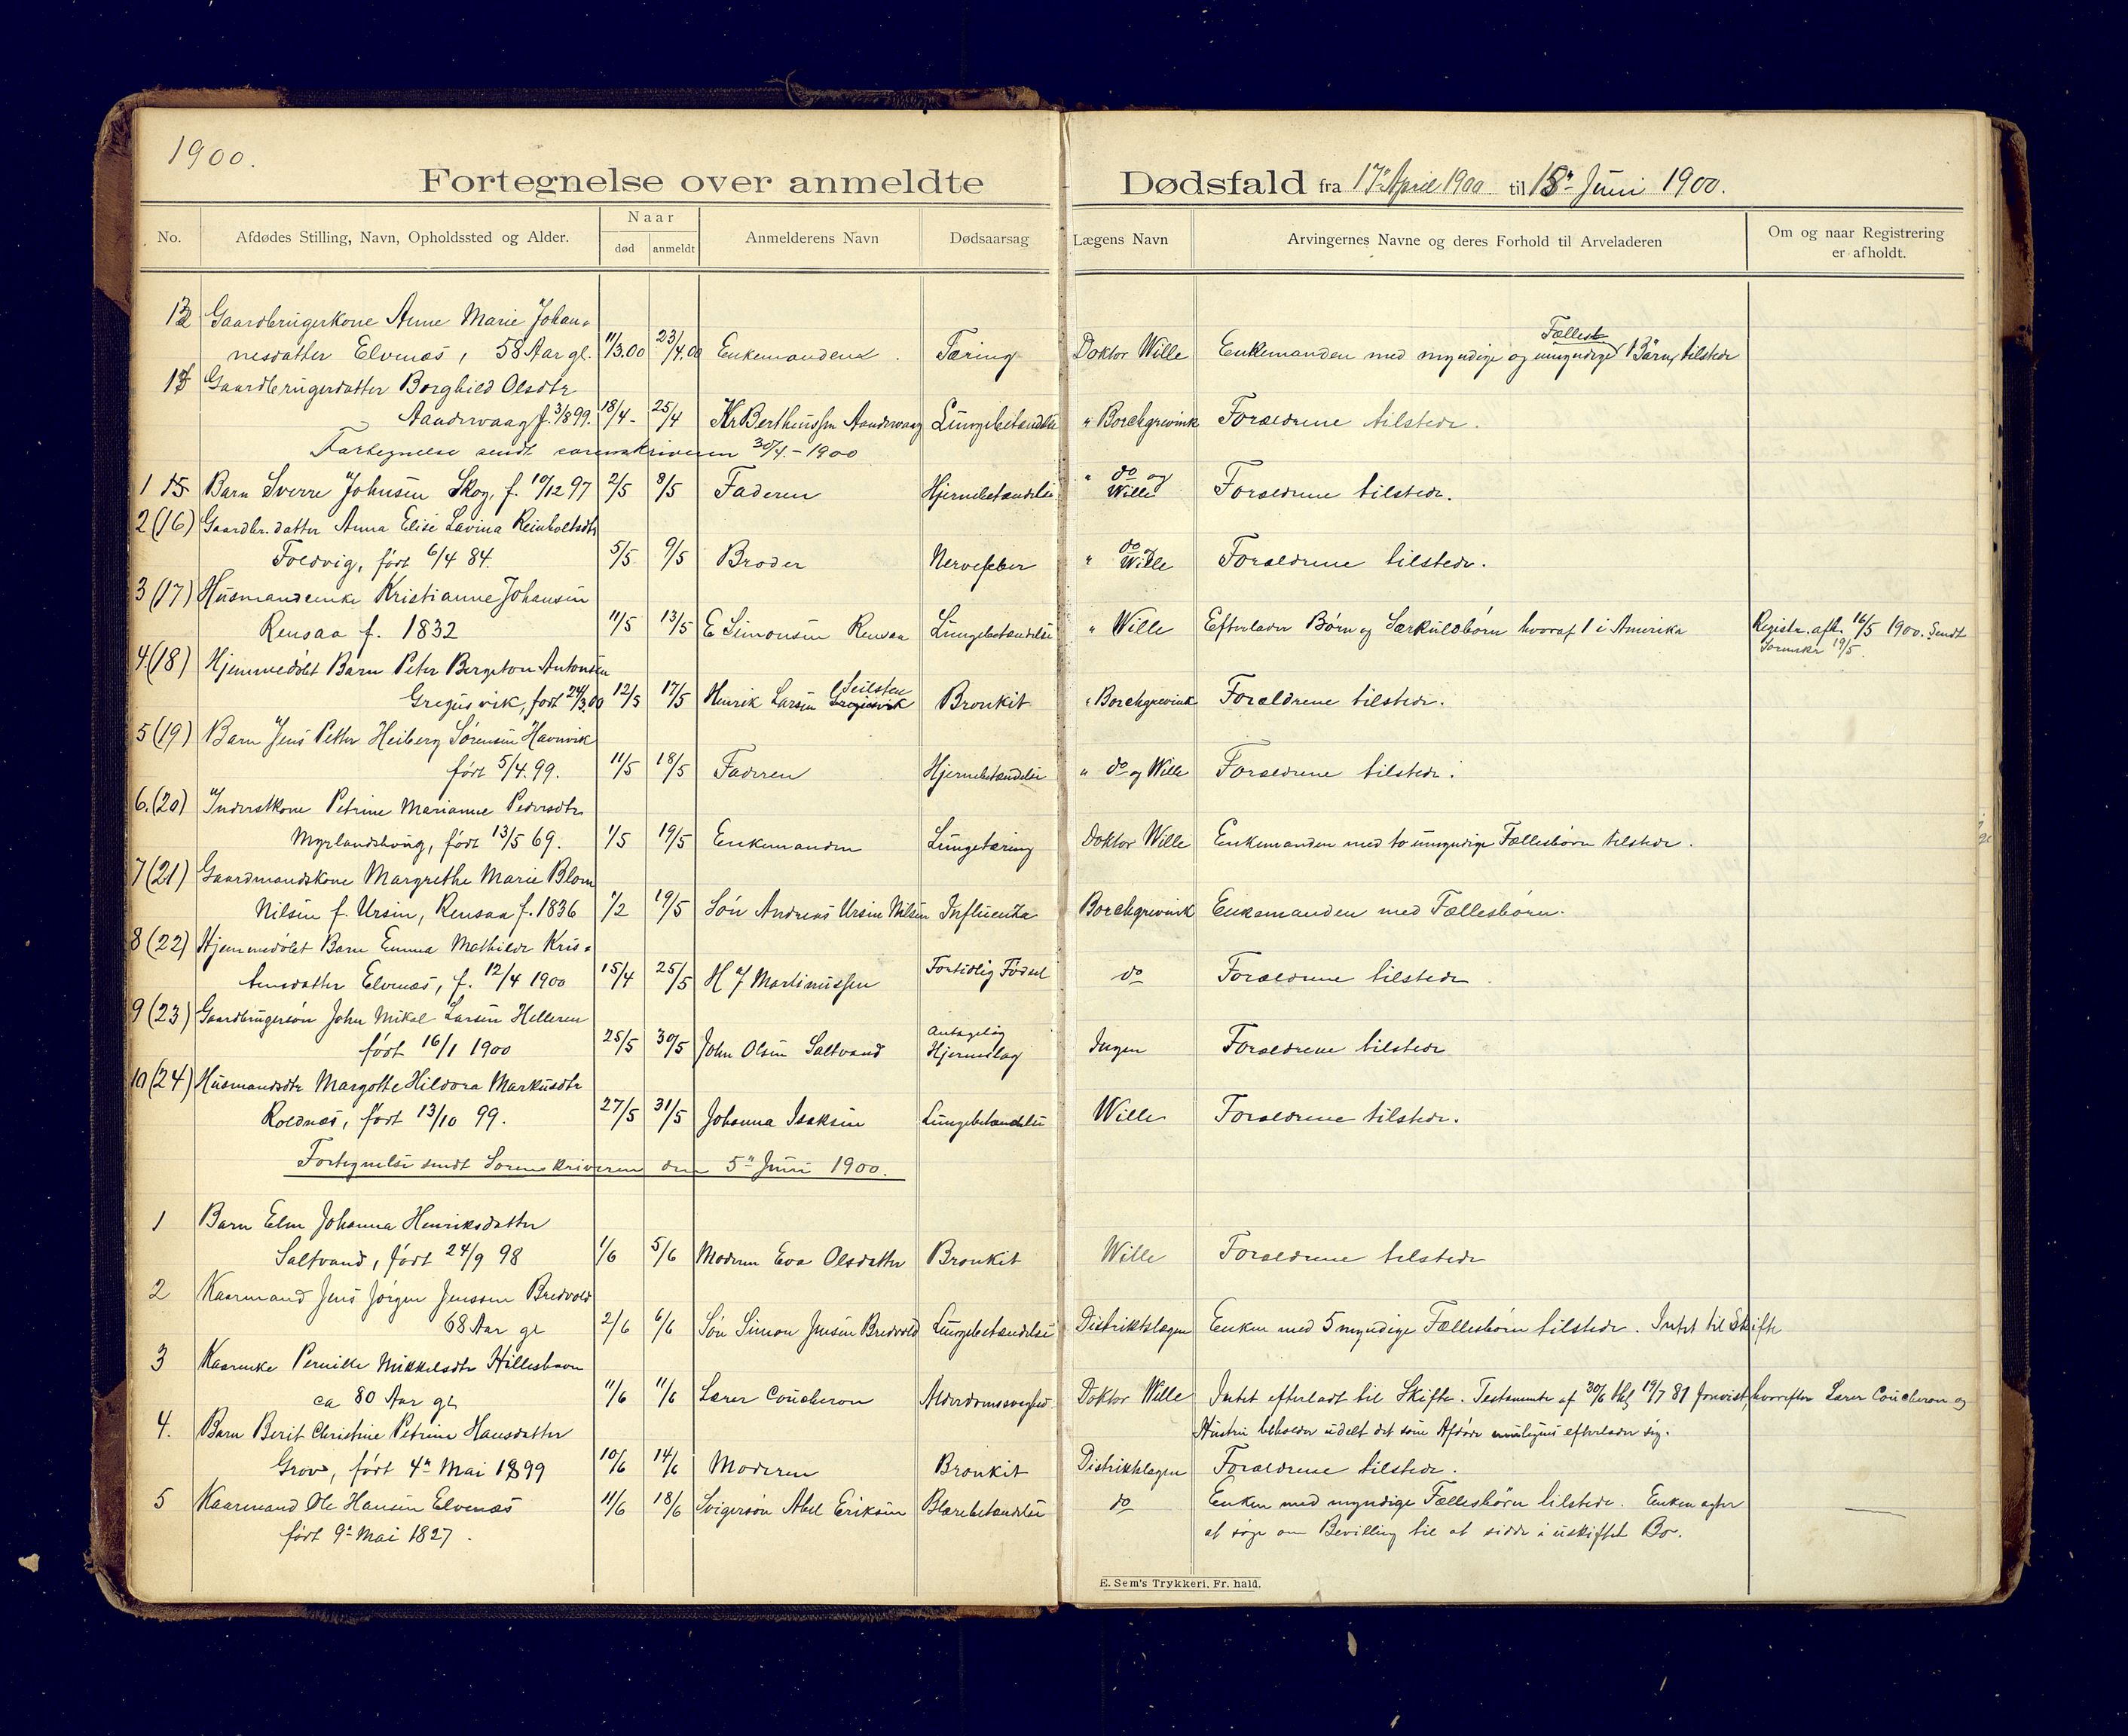 1900.
Fortegnelse over anmeldte Dødsfald fra 17de April 1900 til 18de Juni 1900.
No.
Afdødes Stilling, Navn, Opholdssted og Alder.
Naar
død
anmeldt
Anmelderens Navn
Dødsaarsag
Lægens Navn
Arvingernes Navne og deres Forhold til Arveladeren
Om og naar Registrering
er afholdt.
Gaardbrugerkone Anne Marie Johan-
Fælles
nesdatter Elvenæs, 58 Aar gl. 11/3.00 23/4.00 Enkemanden. Tæring Doktor Wille Enkemanden med myndige og umyndige Børn tilstede
Gaardbrugerdatter Borghild Olsdtr
Aandervaag f. 3/8 99. 18/4- 25/4 Kr Bertheussen Aandervaag Lungebetændelse " Borchgrevink Forældrene tilstede.
Fortegnelse sendt sorenskriveren 30/4.-1900
1 15 Barn Sverre Johnsen Skog, f. 10/12 97 2/5 8/5 Faderen Hjernebetændelse " do og Wille Forældrene tilstede.
2 (16) Gaardbr.datter Anna Elise Lavina Reinholtsdtr
Foldvig, født 6/4 84. 5/5 9/5 Broder Nervefeber " do og Wille Forældrene tilstede.
3 (17) Husmandsenke Kristianne Johansen
Rensaa f. 1832 11/5 13/5 E Simonsen Rensaa Lungebetændelse " Wille Efterlader Børn og Særkuldsbørn hvoraf 1 i Amerika Registr. afh. 16/5 1900. Sendt
Sorenskr 19/5.
4 (18) Hjemmedøbt Barn Peter Bergeton Antonsen
Seilsten
Gregusvik, født 24/3.00 12/5 17/5 Henrik Larsen Gregusvik Bronkit " Borchgrevink Forældrene tilstede.
5 (19) Barn Jens Petter Heiberg Sørensen Havnvik
født 5/4.99. 11/5 18/5 Faderen Hjernebetændelse " do og Wille Forældrene tilstede.
6. (20) Inderstkone Petrine Marianne Pedersdtr
Myrlandshaug, født 13/5 69. 1/5 19/5 Enkemanden Lungetæring Doktor Wille Enkemanden med to umyndige Fællesbørn tilstede.
7 (21) Gaardmandskone Margrethe Marie Blom
Nilsen f. Ursin, Rensaa f. 1836 7/2 19/5 Søn Andreas Ursin Nilsen Influenza Borchgrevink Enkemanden med Fællesbørn.
8 (22) Hjemmedøbt Barn Emma Mathilde Kris-
tensdatter Elvenæs, f. 12/4 1900 15/4 25/5 H J Martinussen Fortidlig Fødsel do Forældrene tilstede
9 (23) Gaardbrugersøn John Mikal Larsen Helleren
født 16/1 1900 25/5 30/5 John Olsen Saltvand Antagelig Hjerneslag Ingen Forældrene tilstede
10 (24) Husmandsdtr Margothe Hildora Markusdtr
Roldnæs, født 13/10 99. 27/5 31/5 Johanna Isaksen Lungebetændelse Wille Forældrene tilstede.
Fortegnelse sendt Sorenskriveren den 5te Juni 1900.
1 Barn Elen Johanna Henriksdatter
Saltvand, født 24/9 98 1/6 5/6 Moderen Eva Olsdatter Bronkit Wille Forældrene tilstede
2 Kaarmand Jens Jørgen Jenssen Bredvold
68 Aar gl 2/6 6/6 Søn Simon Jensen Bredvold Lungebetændelse Distriktslægen Enken med 5 myndige Fællesbørn tilstede. Intet til Skifte
3 Kaarenke Pernille Mikkelsdtr Hilleshavn
ca 80 Aar gl. 11/6 11/6 Lærer Coucheron Alderdomssvaghed Doktor Wille Intet efterladt til Skifte. Testamente af 30/6 thgl 19/7 81 forevist, hvorefter Lærer Coucheron og
Hustru beholder udelt det som Afdøde muligens efterlader sig.
4. Barn Berit Christine Petrine Hansdatter
Grov, født 4de Mai 1899 10/6 14/6 Moderen Bronkit Distriktslægen Forældrene tilstede.
5 Kaarmand Ole Hansen Elvenæs 11/6 18/6 Svigersøn Abel Eriksen Blærebetændelse do Enken med myndige Fællesbørn tilstede. Enken agter
født 9de Mai 1827. at søge om Bevilling til at sidde i uskiftet Bo.
E. Sem's Trykkeri, Fr. hald.